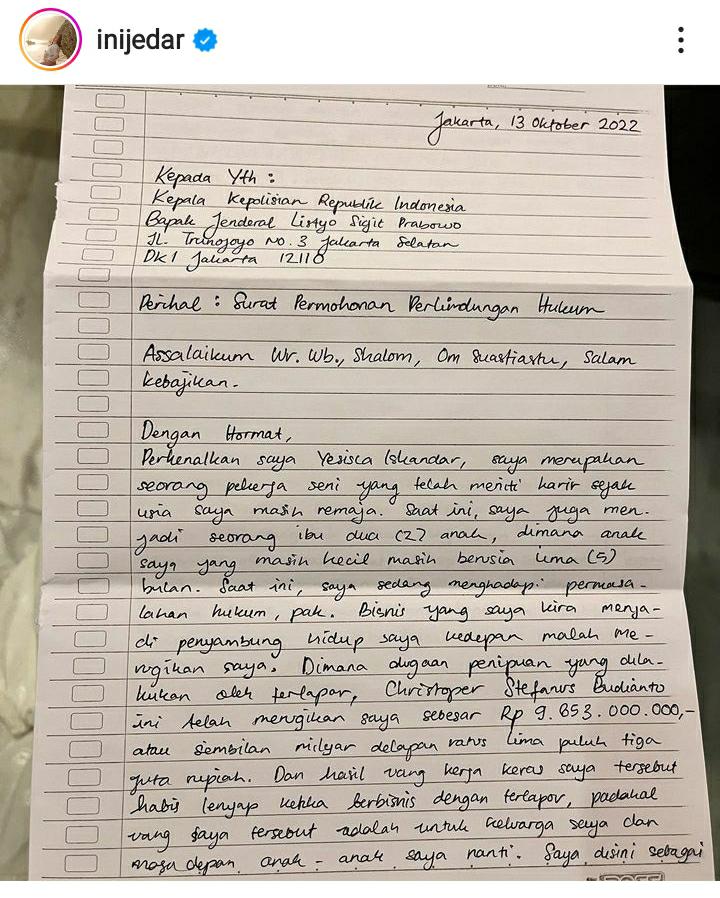 inijedar
Jakarta, 13 Oktober 2022
Kepada Yth :
Kepala Kepolisian Republik Indonesia
Bapak Jenderal Listyo Sigit Prabowo
JL. Trunojoyo No. 3 Jakarta Selatan
DKI Jakarta 12110
Perihal : Surat Permohonan Perlindungan Hukum
Assalaikum Wr. Wb., Shalom, Om Suastiastu, Salam
kebajikan.
Dengan Hormat,
Perkenalkan saya Yesisca Iskandar, saya merupakan
seorang pekerja seni yang telah meniti karir sejak
usia saya masih remaja. Saat ini, saya juga men-
jadi seorang ibu dua (2) anak, dimana anak
saya yang masih kecil masih berusia lima (5)
bulan. Saat ini, saya sedang menghadapi permasa-
lahan hukum, pak. Bisnis yang saya kira menja-
di penyambung hidup saya kedepan malah me-
rugikan saya. Dimana dugaan penipuan yang dila-
kukan oleh terlapor, Christoper Stefanus Budianto
ini telah merugikan saya sebesar Rp 9.853.000.000,-
atau sembilan milyar delapan ratus lima puluh tiga
juta rupiah. Dan hasil uang kerja keras saya tersebut
habis lenyap ketika berbisnis dengan terlapor, padahal
uang saya tersebut adalah untuk keluarga saya dan
masa depan anak - anak saya nanti. Saya disini sebagai